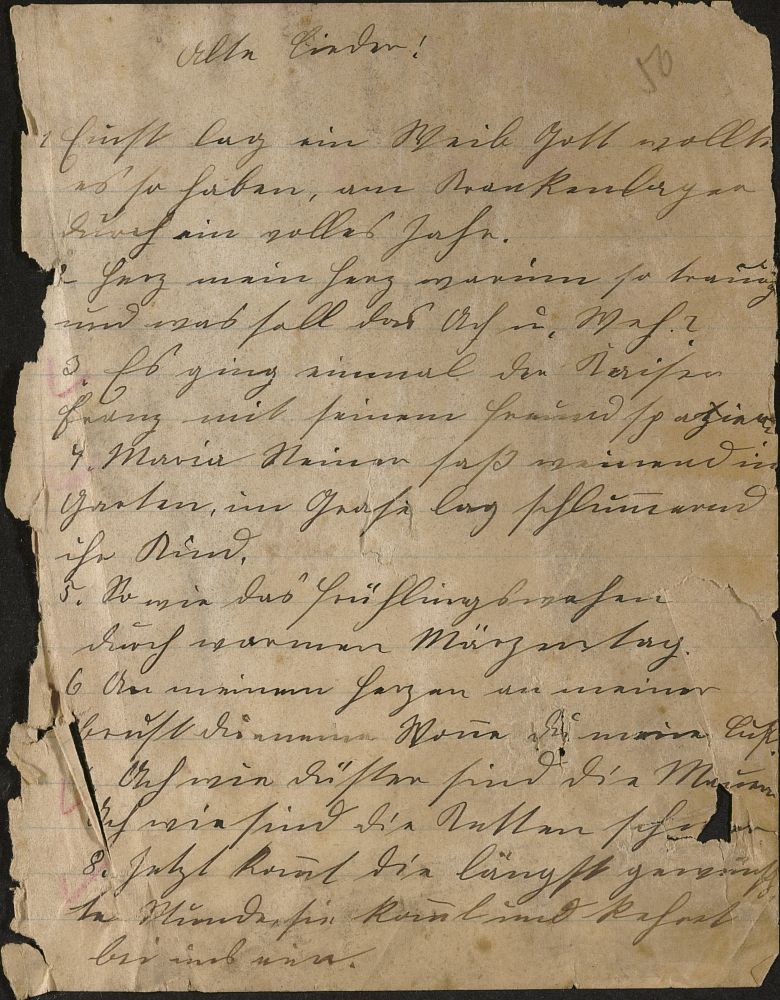 Alte Lieder!
50
1 Einst lag ein Weib Gott wollte
es so haben, am Krankenlager
durch ein volles Jahr.
2 Herz mein Herz warum so traurig
und was soll das Ach u. Weh.?
3. Es ging einmal der Kaiser
Franz mit seinem Freund spazieren
4. Maria Steiner saß weinend im
Garten, im Grase lag schlum̄ernd
ihr Kind.
5. So wie das Frühlingswehen
durch warmen Märzentag.
6 An meinem Herzen an meiner
Brust du meine Won̄e du meine Lust.
Ach wie düster sind die Mauern
Ach wie sind die Ketten schwer
8. Jetzt kom̄t die längst gewünsch
te Stunde, sie kom̄t und kehret
bei uns ein.